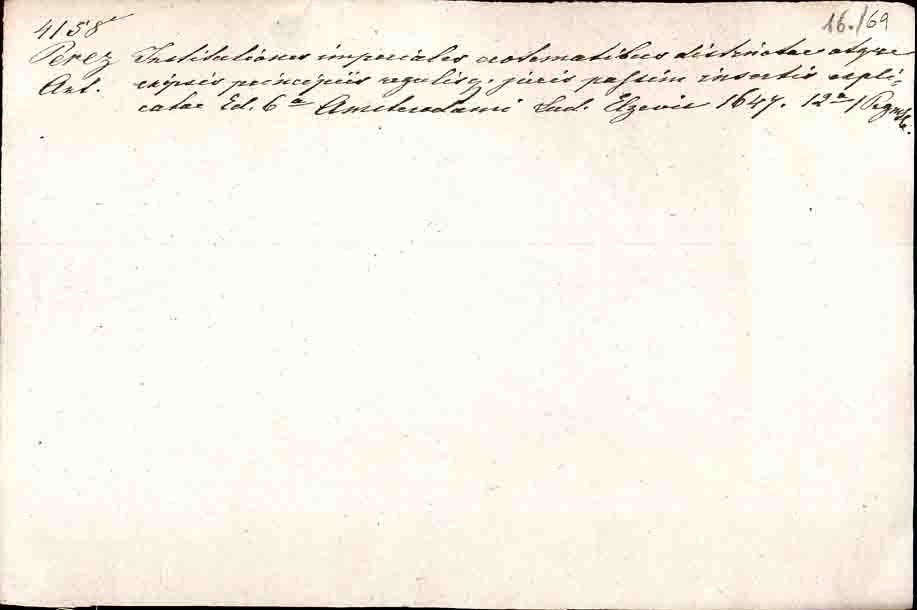 4158 16./69
Perez Institutiones imperiales erotematibus distinctae atque
Ant. exipsis principiis regulisq. juris passim insertis expli-
catae Ed. 6a Amstelodami Lud. Elzevir 1647. 12o /